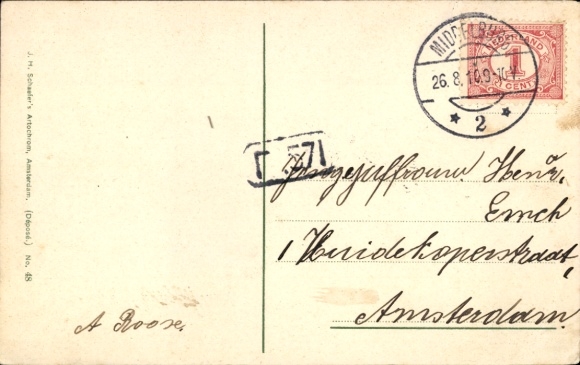 J. H. Schaefer's Artochrom, Amsterdam, (Déposé.) No. 48
MIDDELBU
26.8.10.9-10V
2
NEDERLAND
1
CENT
Jongejuffrouw Henr.
Emck
1 Huidekoperstraat,
Amsterdam.
A Roose.